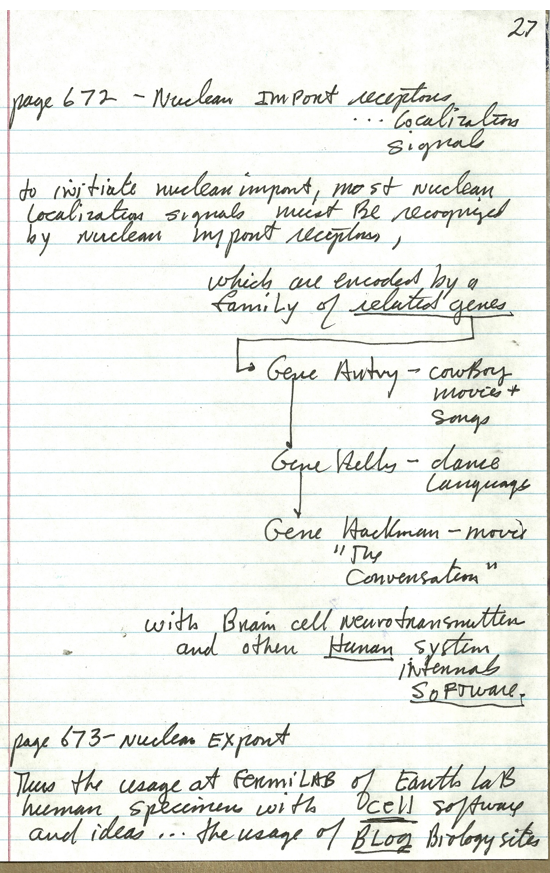 27
page 672 - Nuclear Import receptors
... Localization
signals
to initiate nuclear import, most nuclear
Localization signals must Be recognized
by nuclear import receptors,
which are encoded by a
family of related genes
Gene Autry - cowBoy
movies +
songs
Gene Kelly - dance
Language
Gene Hackman - movie
"The
Conversation"
with Brain cell neurotransmitter
and other Human system
internal
SOFTware.
page 673 - Nuclear Export
Thus the usage at FermiLAB of Earth LAB
human specimen with cell software
and ideas ... the usage of BLog Biology sites